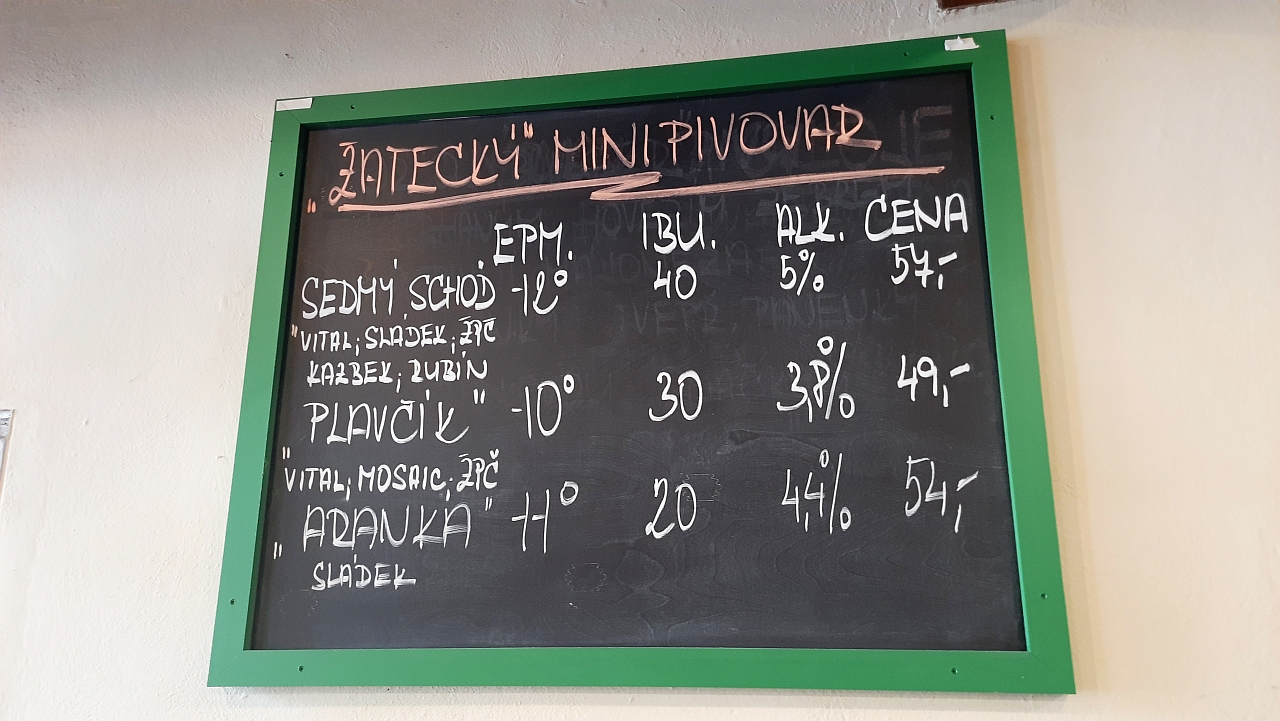 „ŽATECKÝ" MINIPIVOVAR
EPM. IBU. ALK. CENA
SEDMÝ SCHOD -12° 40 5% 57,-
VITAL, SLÁDEK, ŽPČ
KAZBEK, RUBÍN
"PLAVČÍK" -10° 30 3,8% 49,-
VITAL, MOSAIC, ŽPČ
„ARANKA" -11° 20 4,4% 54,-
SLÁDEK